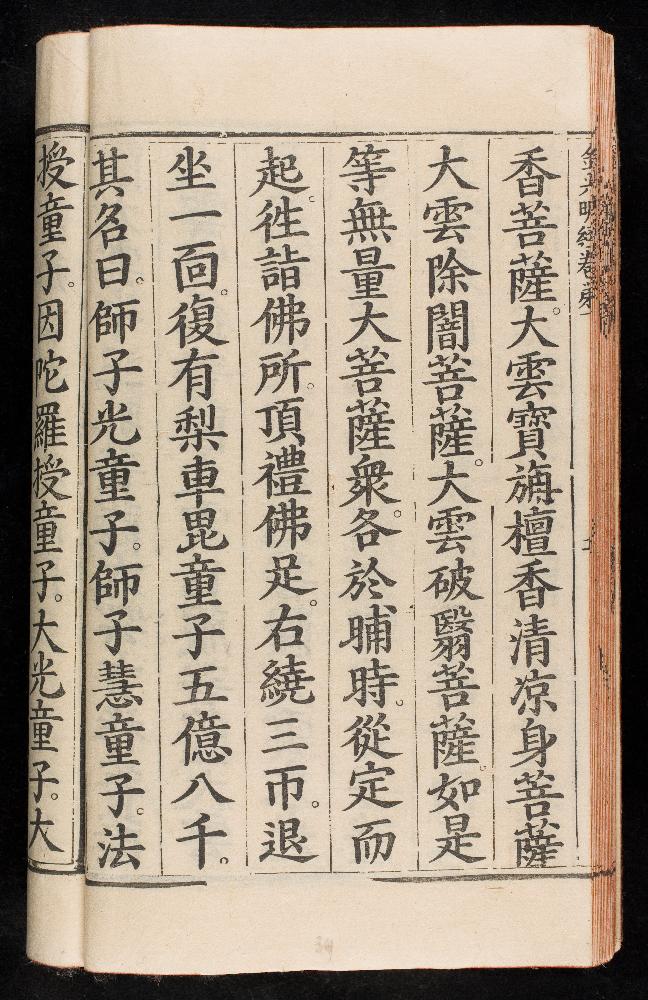 金光明經卷第一
香菩薩。大雲寶旃檀香清涼身菩薩
大雲除闇菩薩。大雲破翳菩薩。如是
等無量大菩薩衆。各於晡時。從定而
起。徃詣佛所。頂禮佛足。右繞三帀。退
坐一靣。復有梨車毘童子五億八千。
其名曰。師子光童子。師子慧童子。法
授童子。因陀羅授童子。大光童子。大